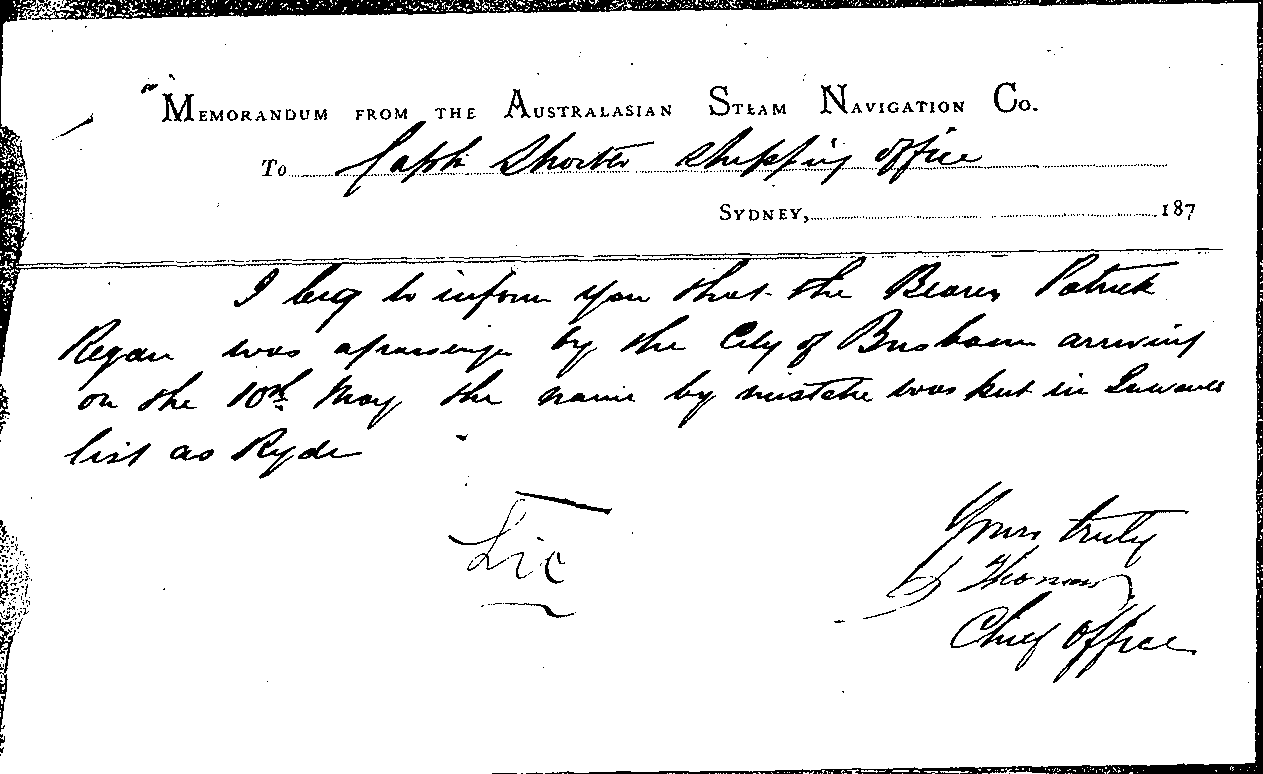 MEMORANDUM FROM THE AUSTRALASIAN STEAM NAVIGATION CO.
To Captn Shorter Shipping office
SYDNEY, 187
I beg to inform you that the Bearer Patrick
Regan was a passenger by the City of Brisbane arriving
on the 10th May the name by mistake was put in Inwards
list as Ryde
Yours truly
Thomas
Chief Officer